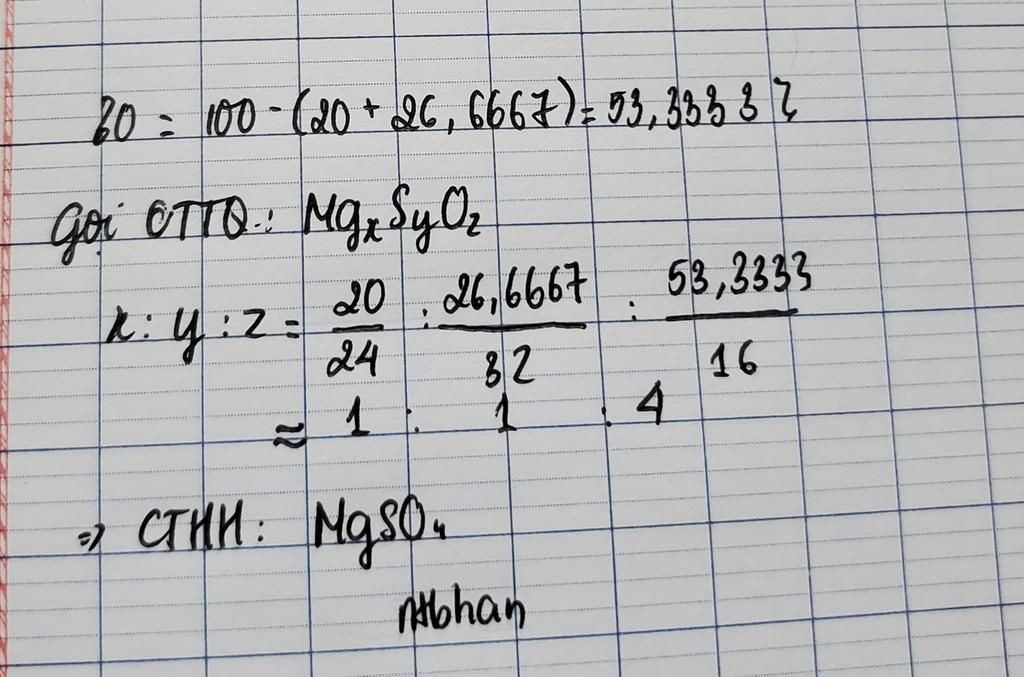 %O = 100 - (20 + 26,6667) = 53,3333 %
Gọi CTTQ: MgxSyOz
x : y : z = 20/24 : 26,6667/32 : 53,3333/16
≈ 1 : 1 : 4
=> CTHH: MgSO4